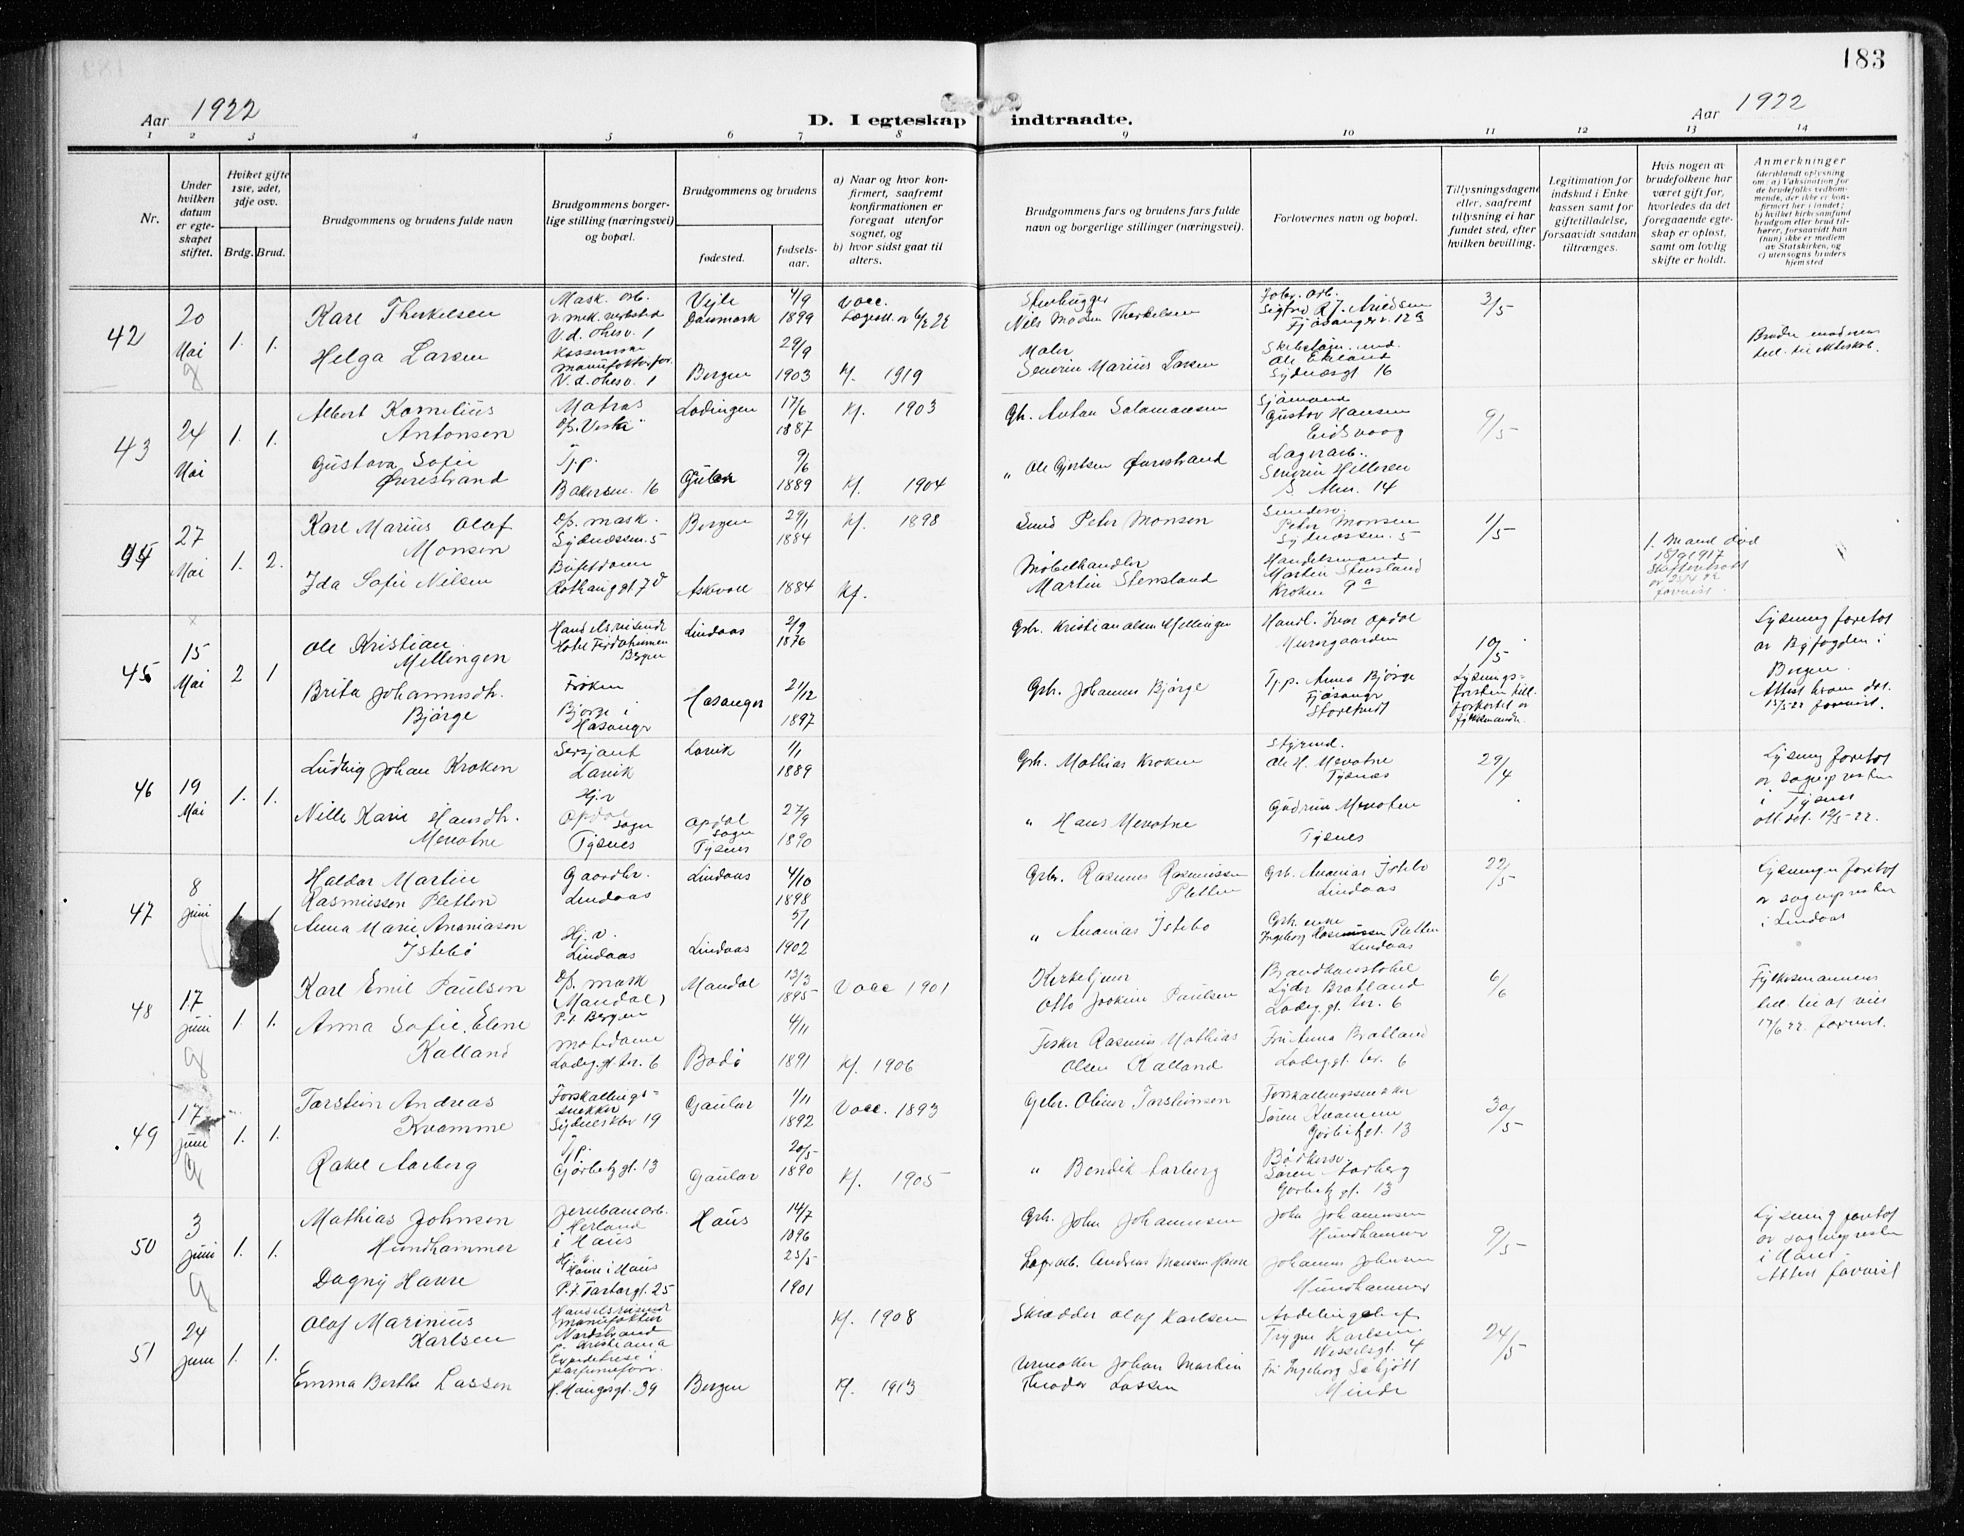 183
Aar 1922
D. I egteskap indtraadte.
Aar 1922
1 2 3 4 5 6 7 8 9 10 11 12 13 14
Nr.
Under hvilken datum er egteskapet stiftet.
Hviket gifte 1ste, 2det, 3dje osv.
Brdg. Brud.
Brudgommens og brudens fulde navn
Brudgommens borgerlige stilling (næringsvei) og bopæl.
Brudgommens og brudens
fødested.
fødselsaar.
a) Naar og hvor konfirmert, saafremt konfirmationen er foregaat utenfor sognet, og
b) hvor sidst gaat til alters.
Brudgommens fars og brudens fars fulde navn og borgerlige stillinger (næringsvei).
Forlovernes navn og bopæl.
Tillysningsdagene eller, saafremt tillysning ei har fundet sted, efter hvilken bevilling.
Legitimation for indskud i Enkekassen samt for giftetilladelse, forsaavidt saadan tiltrænges.
Hvis nogen av brudefolkene har været gift før, hvorledes da det foregaaende egteskap er opløst, samt om lovlig skifte er holdt.
Anmerkninger
(deriblandt oplysning om: a) Vaksination for de brudefolks vedkommende, der ikke er konfirmert her i landet; b) hvilket kirkesamfund brudgom eller brud tilhører, forsaavidt han (hun) ikke er medlem av Statskirken, og c) utensogns bruders hjemsted
42
20 Mai
1. 1.
Karl Therkelsen
Helga Larsen
Mask. arb.
v. mek. verksted
V.d. ohesv. 1
V.d. ohesv. 1
Vejle
Danmark
4/9 1899
Bergen
29/9 1903
Vacc.
Kf. 1919
Stenhugger
Nils Madsen Therkelsen
Maler
Severin Marius Larsen
Sydnæsgt 16
3/5
43
24 Mai
1. 1.
Albert Kornelius
Antonsen
Gustava Sofie
Øvrestrand
Matros
Tj.p.
Bakersm. 16
Lødingen
17/6 1887
Gulen
9/6 1889
Kf. 1903
Kf. 1904
Gbr. Anton Salamonsen
" Ole Gjertsen Øvrestrand
Sjømand
Gustav Hansen
Eidsvaag
Lagerarb.
Severin Helleren
S. Alm. 14
9/5
27 Mai
1. 2.
Karl Marius Olaf
Monsen
Ida Sofie Nilsen
Dp. mask.
Sydnæssm. 5
Bufetdame
Bergen
29/1 1884
Askvoll 1884
Kf. 1898
Kf.
Smed Peter Monsen
Møbelhandler
Martin Stensland
Peter Monsen
Sydnæssm. 5
Handelsmand
Martin Stensland
Kroken 9a
1/5
1. Mand død
18/9 1917
45
15 Mai
2 1
Ole Kristian
Mellingen
Brita Johannesdtr.
Bjørge
Handelsreisende
Bergen
Frøken
Bjørge i
Hosanger
Lindaas
2/9 1876
Hosanger
21/12 1897
Gbr. Kristian Olsen Mellingen
Gbr. Johannes Bjørge
Handl. Ivar Opdal
Murergaarden
Tj.p. Anna Bjørge
Fjøsanger
10/5
Lysnings-
fristen till.
forkortet av
fylkesmanden.
Lysning foretat
av Byfogden i
Bergen.
46
19 Mai
1. 1.
Ludvig Johan Kroken
Nille Karie Hansdtr.
Mevatne
Sersjant
Lavik
Hj.v.
Opdal
sogn
Tysnes
Lavik
1/1 1889
Opdal
sogn
Tysnes
27/9 1890
Gbr. Mathias Kroken
" Hans Mevatne
Styrmd.
Ole H. Mevatne
Tysnes
Gudrun Mevatne
Tysnes
29/4
Lysning foretat
av sognepresten
i Tysnes
att. dat. 19/5-22.
47
8 juni
1. 1.
Haldor Martin
Rasmussen Pletten
Anna Marie Ananiasen
Istebø
Gaardbr.
Lindaas
Hj.v.
Lindaas
Lindaas
4/10 1898
Lindaas
5/1 1902
Gbr. Rasmus Rasmussen
Pletten
" Ananias Istebø
Gbr. Ananias Istebø
Lindaas
Gbr. enke
Ingeborg Rasmussen Pletten
Lindaas
22/5
Lysninger foretat
av sogneprester
i Lindaas
48
17 juni
1. 1.
Karl Emil Paulsen
Anna Sofie Elene
Kalland
Dp. mask
(Mandal)
P.t. Bergen
Motedame
Ladeg. gt ter. 6
Mandal
13/3 1895
Bodø
4/11 1891
Vacc 1901
Kf. 1906
Kirketjener
Otto Joakim Paulsen
Fisker Rasmus Mathias
Olsen Kalland
Lyder Bratland
Ladeg. gt ter. 6
Fru Anna Bratland
Ladeg. gt. ter. 6
6/6
Fylkesmannens
49
17 juni
1. 1.
Torstein Andreas
Kvamme
Rakel Aarberg
Forskallings-
snekker
Tjp.
Gørbitzgt. 13
Gaular
1/11 1892
Gaular
20/5 1890
Vacc. 1893
Kf. 1905
Gbr. Oliver Torsteinson
" Bendik Aarberg
Forskallingssnekker
Søren Kvamme
Gørbitzgt. 13
Bødkersv.
Søren Aarberg
Gørbitzgt. 13
30/5
50
3 juni
1. 1.
Mathias Johnsen
Hundhammer
Dagny Hauge
Jernbanearb.
Herland
i Haus
Haus
14/7 1896
25/5 1901
Gbr. John Johannesen
John Johannesen
Hundhammer
Johannes Johnsen
Hundhammer
9/5
Lysning foretat
av sogneprester
i Haus.
Attest forevist
51
24 juni
1. 1.
Olaf Marinius
Karlsen
Emma Berthe Lassen
Handelsreisende
manufaktur
Nordstrand
p. Kristiania
H. Haugesgt. 39
Bergen
Kf. 1908
Kf. 1913
Skrædder Olaf Karlsen
Urmaker Johan Martin
Theodor Lassen
Avdelingschef
Trygve Karlsen
Wesselsgt. 4
Minde
24/5